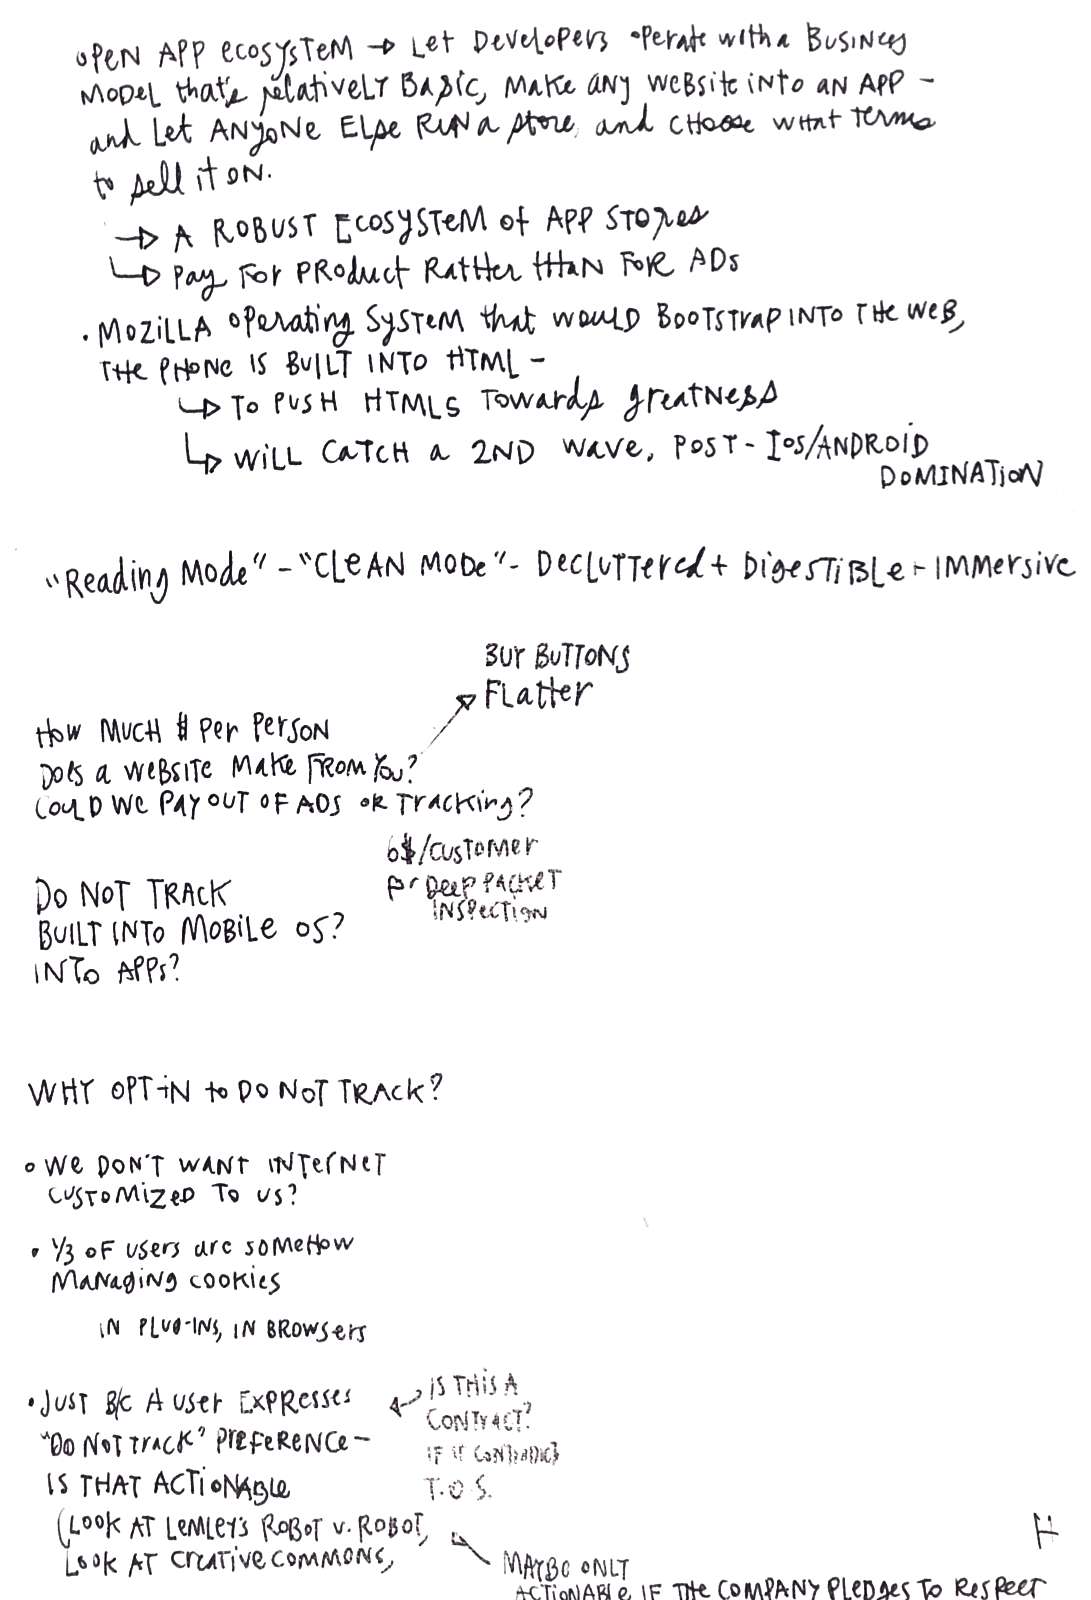 • OPEN APP ECOSYSTEM → LET DEVELOPERS OPERATE WITH A BUSINESS
MODEL that's RELATIVELY BASIC, MAKE ANY WEBSITE INTO AN APP -
and LET ANYONE ELSE RUN a store, and CHOOSE WHAT TERMS
to sell it ON.
→ A ROBUST ECOSYSTEM of APP STORES
↳ PAY FOR PRODUCT RATHER tHAN FOR ADs
• MOZILLA OPERATING SYSTEM that WOULD BOOTSTRAP INTO THE WEB,
THE PHONE IS BUILT INTO HTML -
↳ TO PUSH HTML5 TOWARDS greatNESS
↳ WILL CATCH a 2ND WAVE, POST - IOS/ANDROID
DOMINATION
"Reading Mode" - "CLEAN MODE" - DECLUTTERED + DIGESTIBLE + IMMERSIVE
BUY BUTTONS
FLATTER
HOW MUCH $ PER PERSON
DOES a WEBSITE MAKE FROM YOU?
COULD WE PAY OUT OF ADS OR TRACKING?
6$/CUSTOMER
for DEEP PACKET
INSPECTION
DO NOT TRACK
BUILT INTO MOBILE OS?
INTO APPS?
WHY OPT-IN to DO NOT TRACK?
• WE DON'T WANT INTERNET
CUSTOMIZED TO US?
• 1/3 OF USERS are SOMEHOW
MANAGING COOKIES
IN PLUG-INS, IN BROWSERS
• JUST B/C A USER EXPRESSES
"DO NOT TRACK" PREFERENCE -
IS THAT ACTIONABLE
(LOOK AT LEMLEY'S ROBOT v. ROBOT,
LOOK AT CREATIVE COMMONS,
IS THIS A
CONTRACT?
IF IT CONTRADICTS
T.O.S.
MAYBE ONLY
ACTIONABLE IF THE COMPANY PLEDGES TO RESPECT